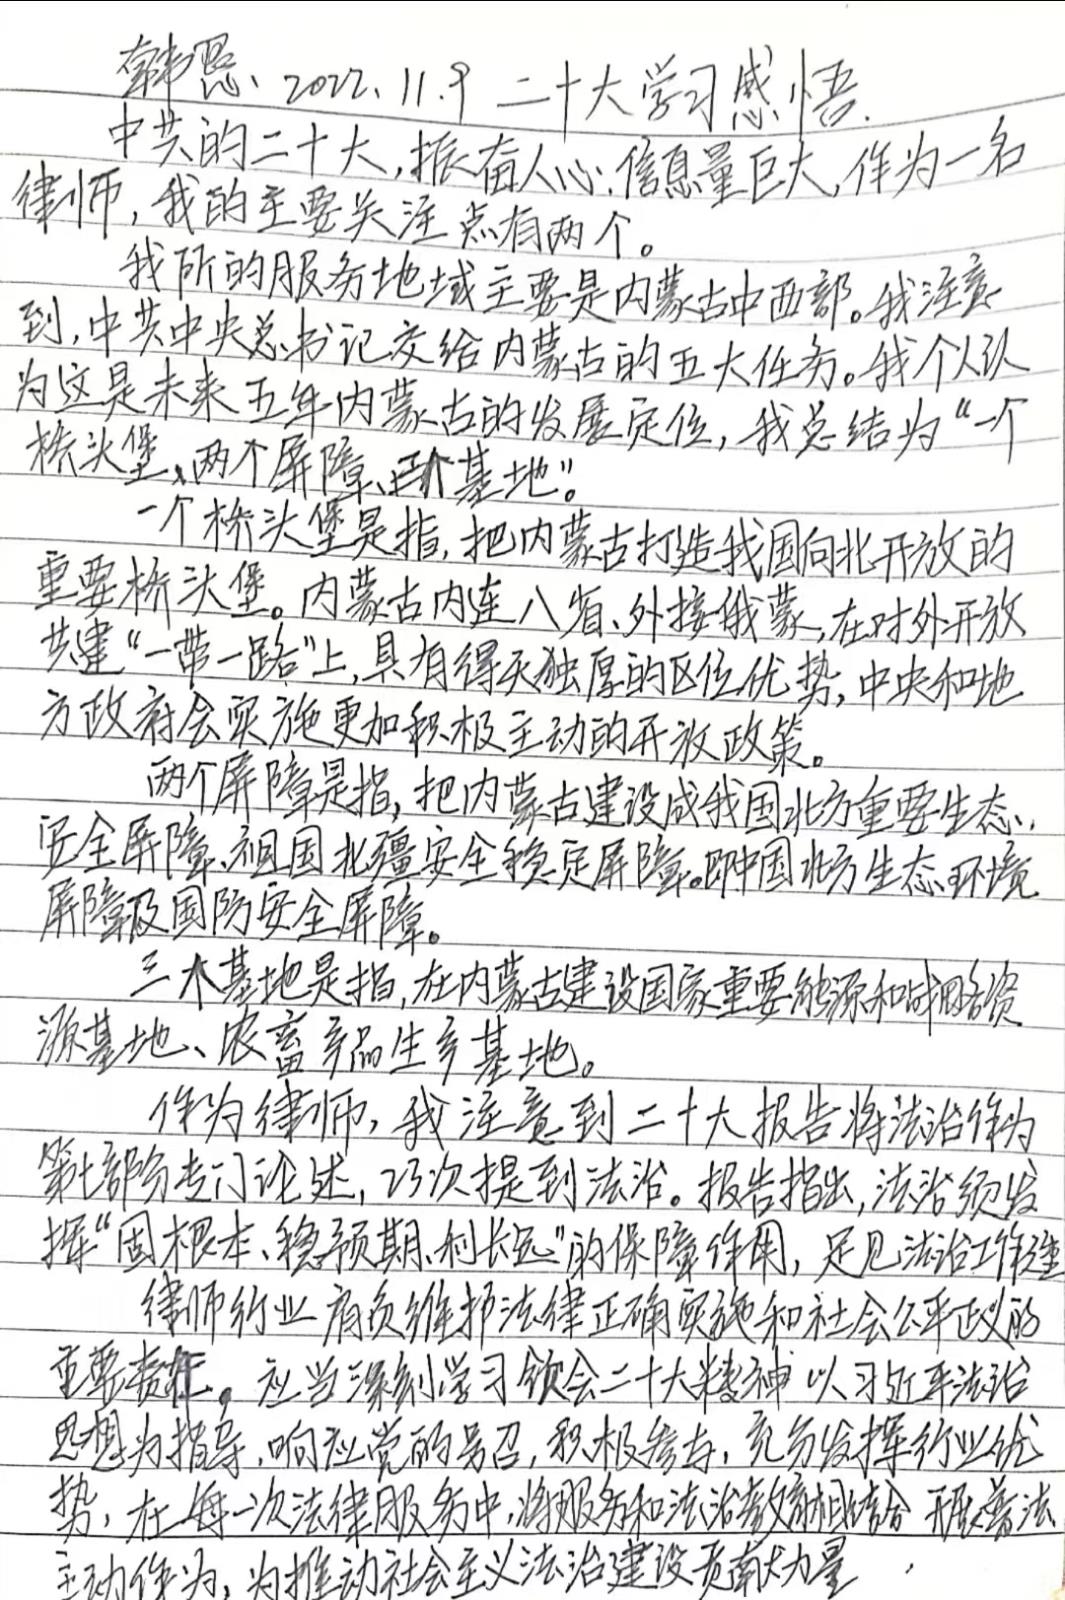 韩思、2022.11.9 二十大学习感悟.
中共的二十大，振奋人心，信息量巨大，作为一名
律师，我的主要关注点有两个。
我所的服务地域主要是内蒙古中西部。我注意
到，中共中央总书记交给内蒙古的五大任务。我个人认
为这是未来五年内蒙古的发展定位，我总结为“一个
桥头堡、两个屏障、三个基地”。
一个桥头堡是指，把内蒙古打造我国向北开放的
重要桥头堡。内蒙古内连八省、外接俄蒙，在对外开放
共建“一带一路”上，具有得天独厚的区位优势，中央和地
方政府会实施更加积极主动的开放政策。
两个屏障是指，把内蒙古建设成我国北方重要生态
安全屏障、祖国北疆安全稳定屏障。即中国北方生态环境
屏障及国防安全屏障。
三个基地是指，在内蒙古建设国家重要能源和战略资
源基地、农畜产品生产基地。
作为律师，我注意到二十大报告将法治作为
第七部分专门论述，23次提到法治。报告指出，法治须发
挥“固根本、稳预期、利长远”的保障作用，足见法治工作
律师行业肩负维护法律正确实施和社会公平正义的
重要责任。应当深刻学习领会二十大精神 以习近平法治
思想为指导，响应党的号召，积极参与，充分发挥行业优
势，在每一次法律服务中，将服务和法治教育相结合 开展普法
主动作为，为推动社会主义法治建设贡献力量